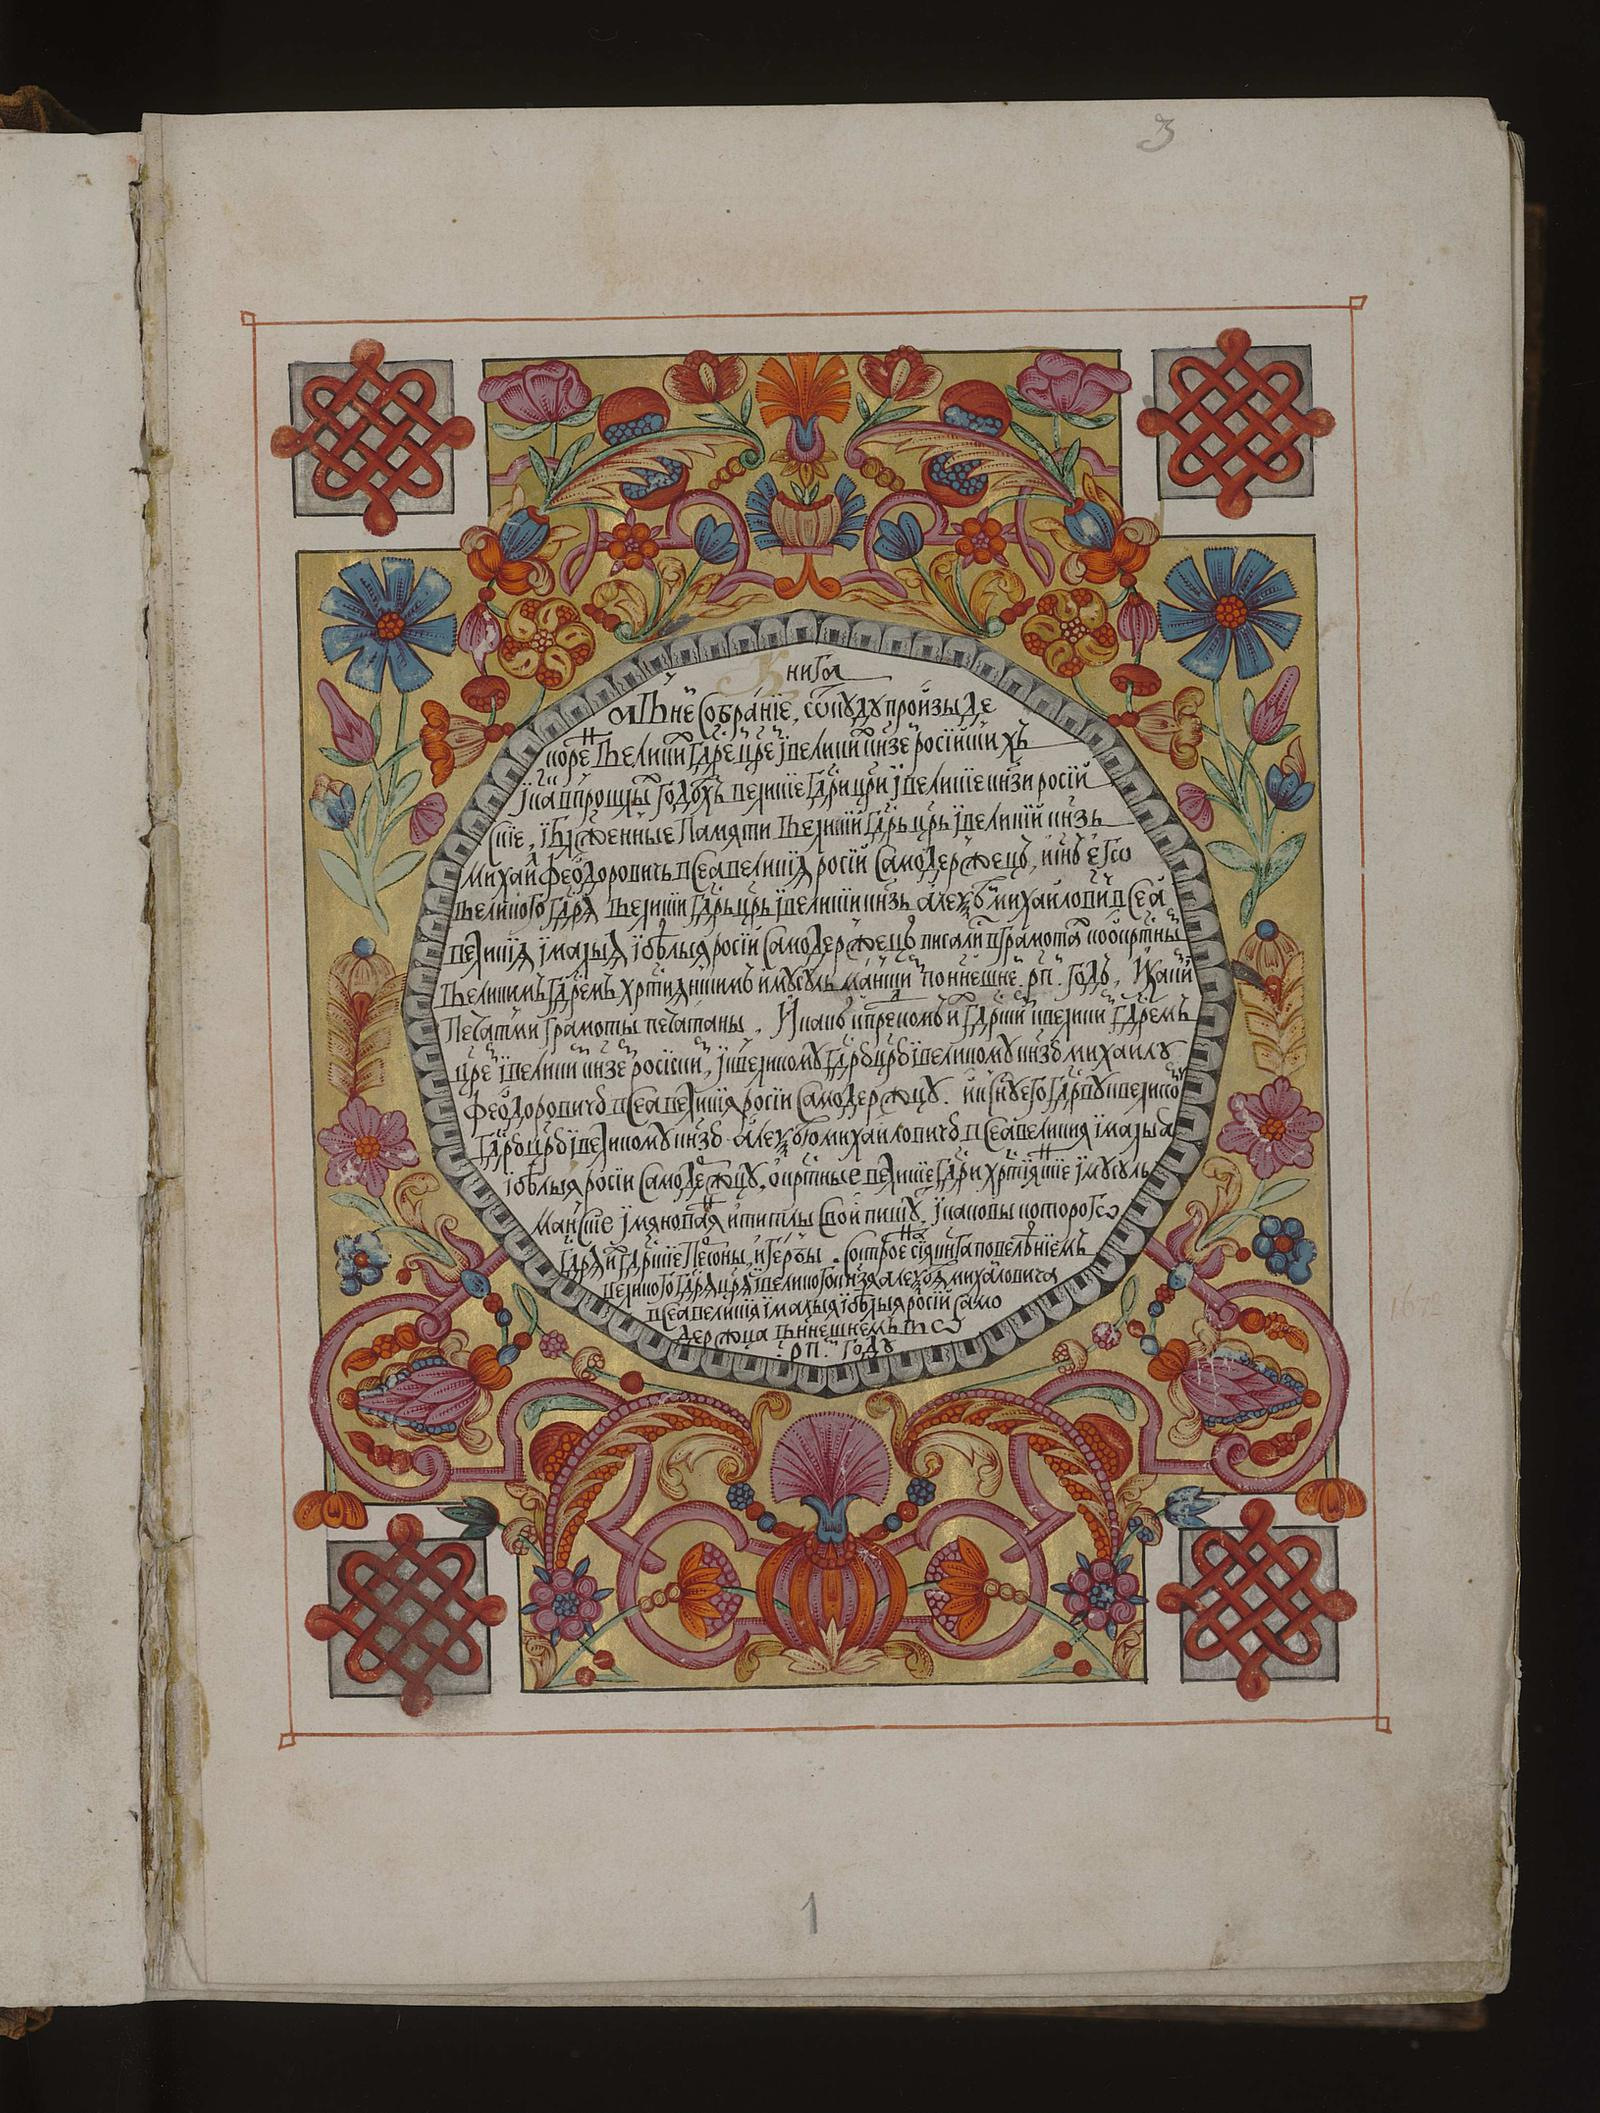 3
Книга
а в не собрание, откуду произыде
корень великих гдрей црей и великих кнзей росийских
и как в прошлых годех великие гдри цри и великие кнзи росий
ские, и блженные памяти великий гдрь црь и великий кнзь
Михаил Феодорович всеа великия росии самодержец, и снъ его
великого гдря великий гдрь црь и великий кнзь Алексей Михайлович всеа
великия и малыя и белыя росии самодержец писали в грамотах к окрестным
великим гдрем хрстиянским и мусульманским по ннешней рп годъ, и какими
печатми грамоты печатаны. и каков к преком и гдрские к великим гдрем
црем и великим кнзем росийским, и к великому гдрю црю и великому кнзю Михаилу
Феодоровичю всеа великия росии самодержцу. и к сну его гдреву к великому
гдрю црю и великому кнзю Алексею Михайловичю всеа великия и малыя
и белыя росии самодержцу, окрестные великие гдри хрстиянские и мусуль
манские имянования и титлы свои пишут, и каковы которого
гдря и гдрские персоны, и гербы. Построена сия книга повелением
великого гдря цря и великого кнзя Алексея Михайловича
всеа великия и малыя и белыя росии само
держца в ннешнем во
рп году
1672
1